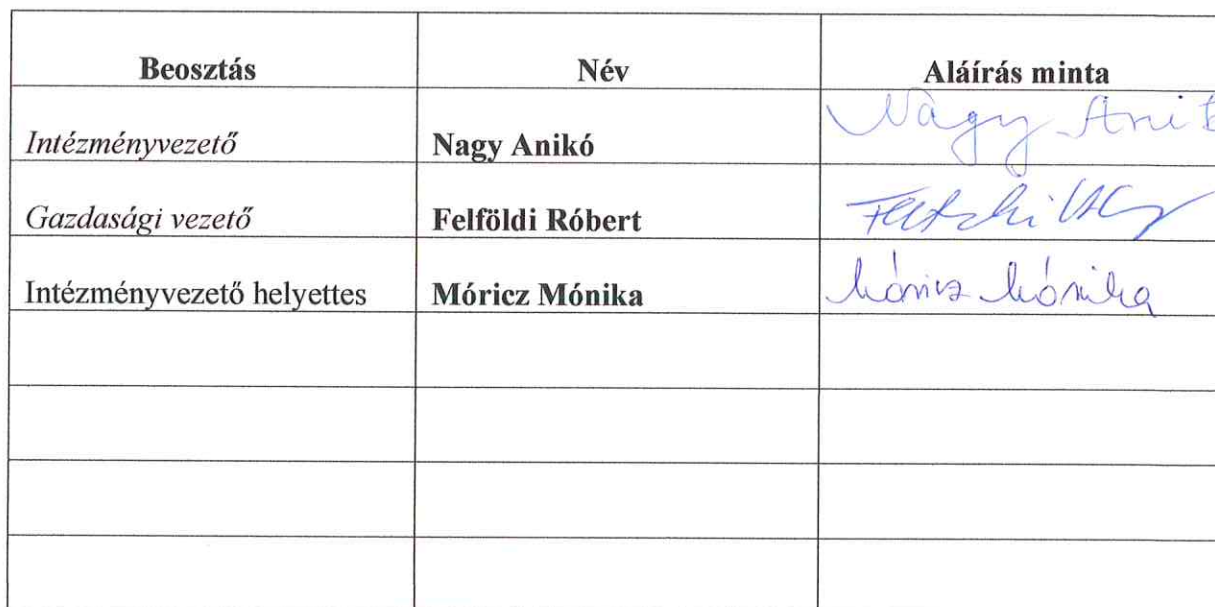 Beosztás Név Aláírás minta
Intézményvezető Nagy Anikó Nagy Anik
Gazdasági vezető Felföldi Róbert
Intézményvezető helyettes Móricz Mónika Móricz Mónika